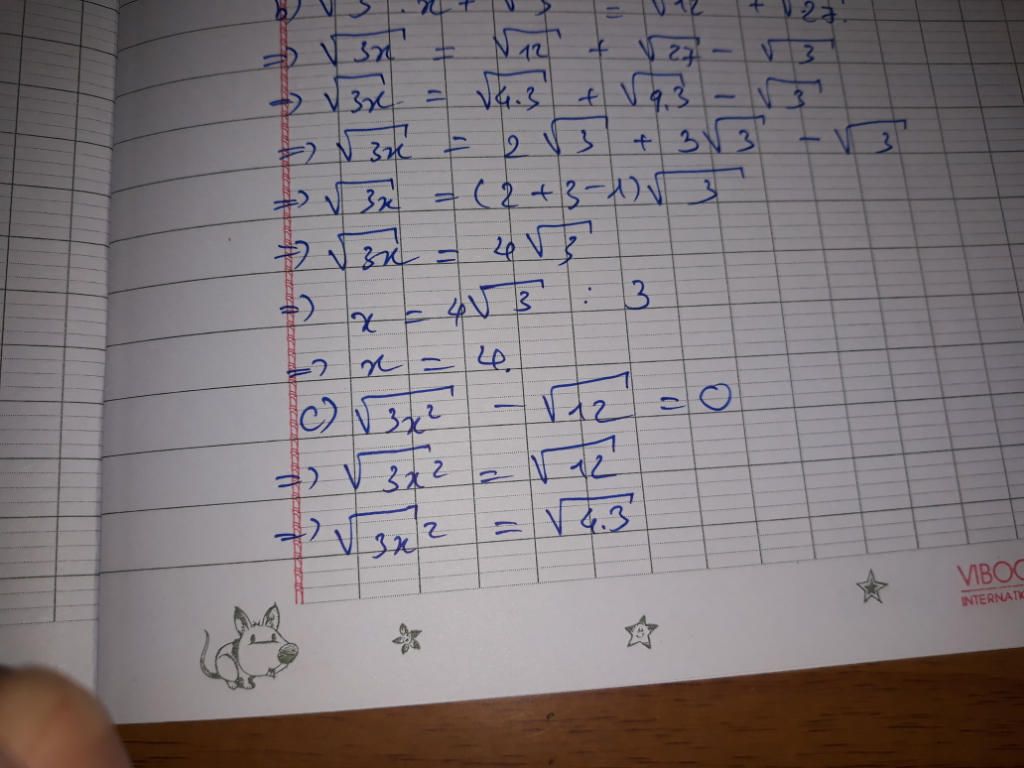 b) √3 . x + √3 = √12 + √27.
=> √3x = √12 + √27 - √3
=> √3x = √4.3 + √9.3 - √3
=> √3x = 2√3 + 3√3 - √3
=> √3x = (2 + 3 - 1)√3
=> √3x = 4√3
=> x = 4√3 : 3
=> x = 4.
c) √3x² - √12 = 0
=> √3x² = √12
=> √3x² = √4.3
VIBOO
INTERNATIO